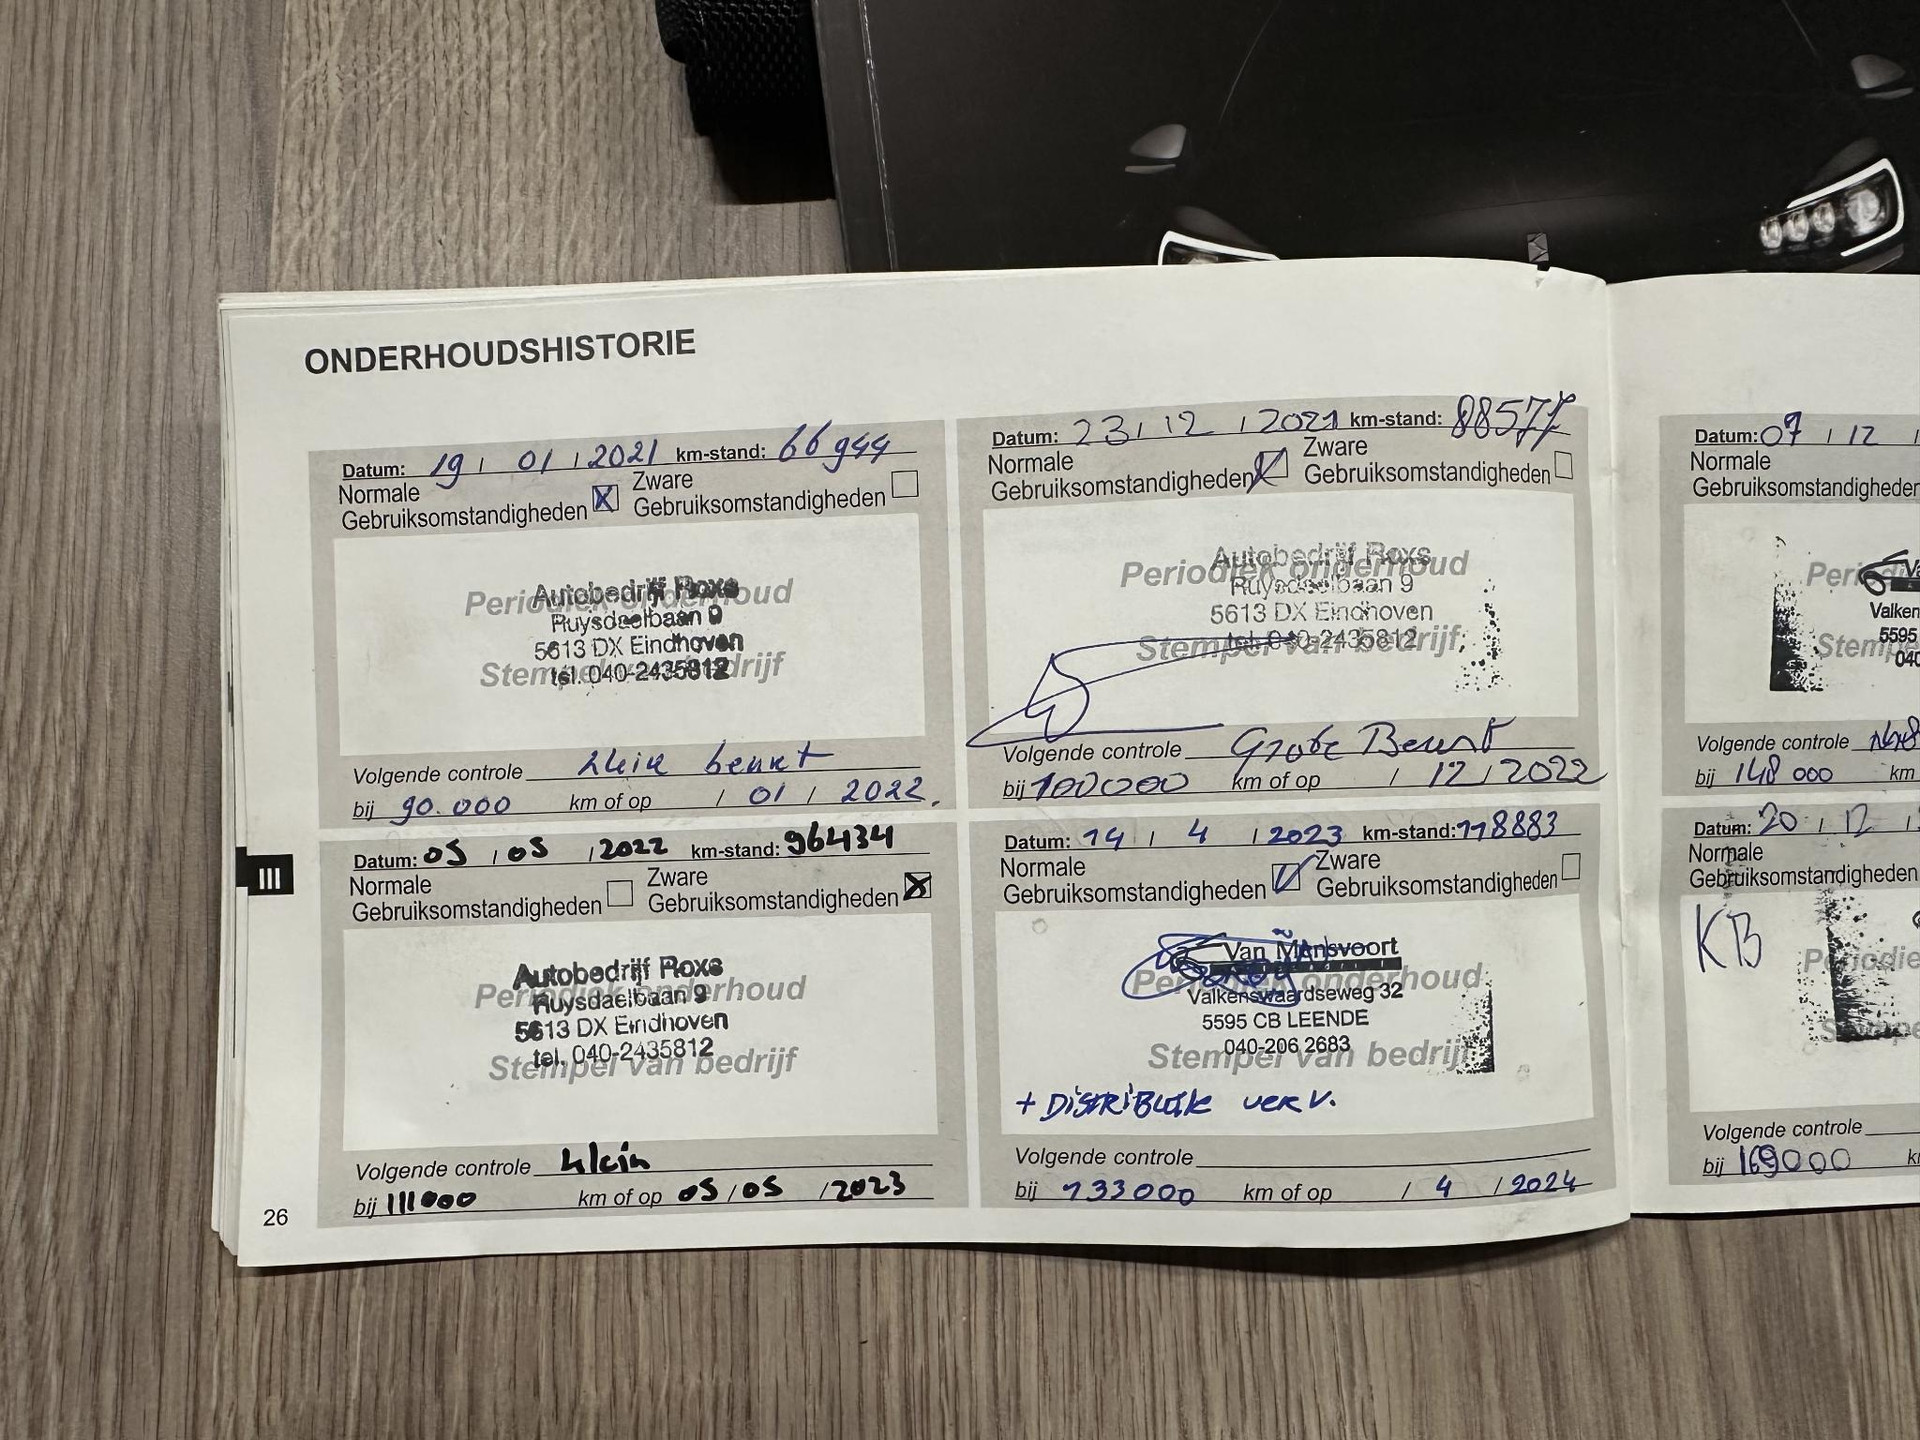 ONDERHOUDSHISTORIE
Datum: 19 / 01 / 2021 km-stand: 66944
Normale
Gebruiksomstandigheden X Zware
Gebruiksomstandigheden
Autobedrijf Roxs
Periodiek onderhoud
Ruysdaelbaan 9
5613 DX Eindhoven
Stempel van bedrijf
tel. 040-2435812
Volgende controle klein beurt
bij 90.000 km of op / 01 / 2022.
Datum: 23 / 12 / 2021 km-stand: 88577
Normale
Gebruiksomstandigheden Zware
Gebruiksomstandigheden
Autobedrijf Roxs
Periodiek onderhoud
Ruysdaelbaan 9
5613 DX Eindhoven
tel. 040-2435812
Stempel van bedrijf
Volgende controle Grote Beurt
bij 100000 km of op / 12 / 2022
Datum: 05 / 05 / 2022 km-stand: 96434
Normale
Gebruiksomstandigheden Zware
Gebruiksomstandigheden X
Autobedrijf Roxs
Periodiek onderhoud
Ruysdaelbaan 9
5613 DX Eindhoven
tel. 040-2435812
Stempel van bedrijf
Volgende controle klein
bij 111000 km of op 05 / 05 / 2023
Datum: 14 / 4 / 2023 km-stand: 118883
Normale
Gebruiksomstandigheden Zware
Gebruiksomstandigheden
Van Mensvoort
Periodiek onderhoud
Valkenswaardseweg 32
5595 CB LEENDE
040-206 2683
Stempel van bedrijf
+ DISTRIBUTIE verv.
Volgende controle
bij 133000 km of op / 4 / 2024
26
III
Datum: 07 / 12 /
Normale
Gebruiksomstandigheden
Valken
5595
040
Stempe
Volgende controle
bij 148 000 km
Datum: 20 / 12 /
Normale
Gebruiksomstandigheden
KB
Periodie
Volgende controle
bij 169000